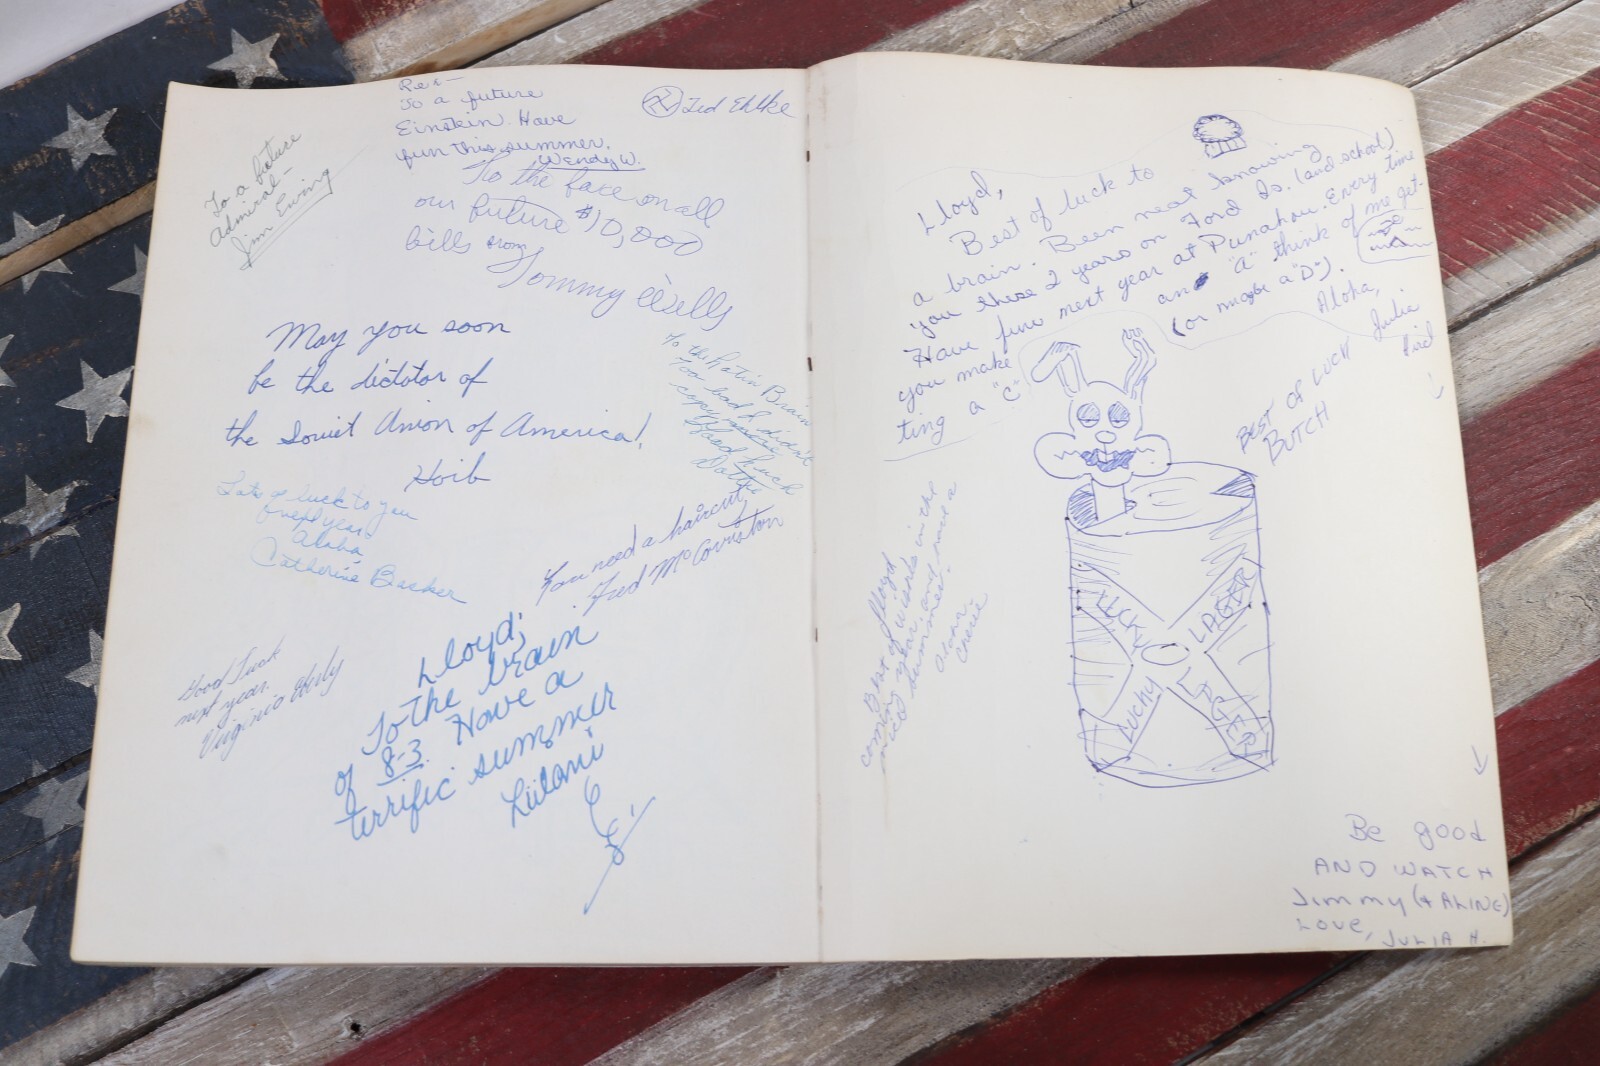 Rex—
To a future
Einstein. Have
fun this summer.
Wendy W.
Ted Ehlke
To a future
admiral—
Jim Ewing
To the face on all
our future $10,000
bills from
Tommy Wells
May you soon
be the dictator of
the Soviet Union of America!
Hoib
To the Rotin Brain
Too bad I didn't
copy more
Good Luck
Dottie
Lots of luck to you
next year.
Aloha,
Catherine Becker
You need a haircut,
Fred McCorriston
Good Luck
next year.
Virginia
Lloyd;
To the brain
of 8-3. Have a
terrific summer
Liilani
Lloyd,
Best of luck to
a brain. Been neat knowing
you these 2 years on Ford Is. (and school)
Have fun next year at Punahou. Every time
you make an "A" think of me get-
ting a "C" (or maybe a "D").
Aloha,
Julia
BEST OF LUCK
BUTCH
Best of wishes in the
coming year, and have a
nice summer.
Cherie
LUCKY LAGER
LUCKY LAGER
Be good
AND WATCH
Jimmy (+ ALINE)
LOVE, JULIA H.